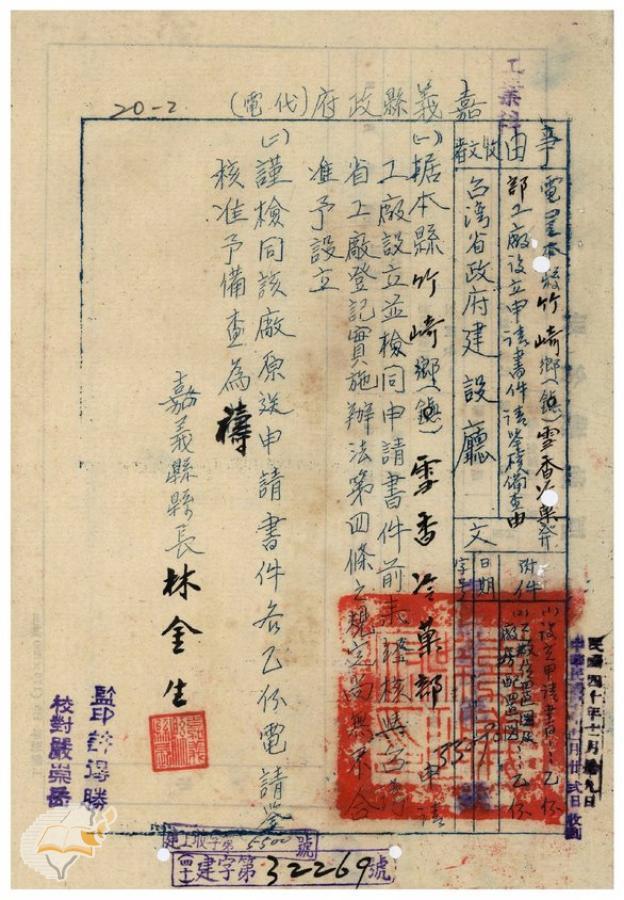 工業科
嘉義縣政府(代電)
20-2
事由
電呈本縣竹崎鄉(鎮)雪香冷菓
部工廠設立申請書件請鑒核備查由
收文者
台灣省政府建設廳
文
附件
(1)設立申請書……乙份
日期
字號
(一)據本縣竹崎鄉(鎮)雪香冷菓部申請
工廠設立並檢同申請書件前來經核與
省工廠登記實施辦法第四條之規定尚無不合
准予設立
(二)謹檢同該廠原送申請書件各乙份電請鑒
核准予備查為禱
嘉義縣縣長林金生
校對嚴崇
建工收字第5500號
四十建字第32269號
民國四十年十二月拾九日